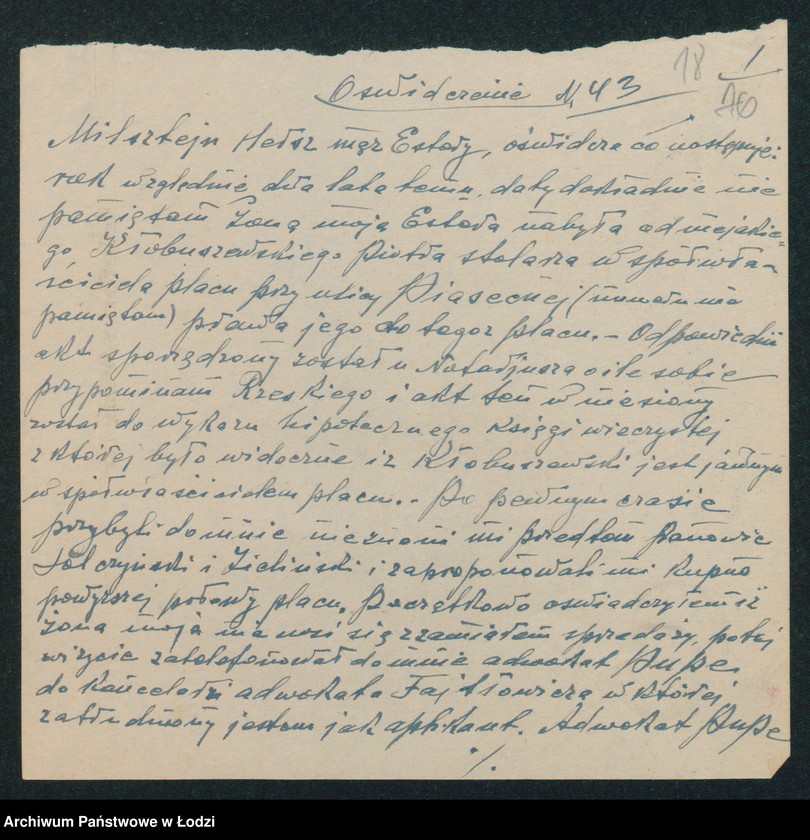 18 1
Oswidczenie N. 43 76
Milsztejn Hersz mąż Estery, oświdcza co następuje:
rok względnie dwa lata temu, daty dokładnie nie
pamiętam żona moja Estera nabyła od niejakie=
go Kłobuszewskiego Piotra stolarza współwła-
ściciela placu przy ulicy Piasecznej (numeru nie
pamiętam) prawa jego do tegoż placu. - Odpowiedni
akt sporządzony został u Notarjusza o ile sobie
przypominam Rzeskiego i akt ten wniesiony
został do wykazu hipotecznego księgi wieczystej
z której było widoczne iż Kłobuszewski jest jawnym
współwłaścicielem placu. - Po pewnym czasie
przybyli do mnie nieznani mi przedtem Panowie
i Zieliński i zaproponowali mi kupno
powyższej połowy placu. Początkowo oswiadczyłem iż
żona moja nie nosi się z zamiarem sprzedaży, po tej
wizycie zatelefonował do mnie adwokat Pupe
do kancelarji adwokata Fajtłowicza w której
zatrudniony jestem jak aplikant. Adwokat Pupe
./.
Archiwum Państwowe w Łodzi